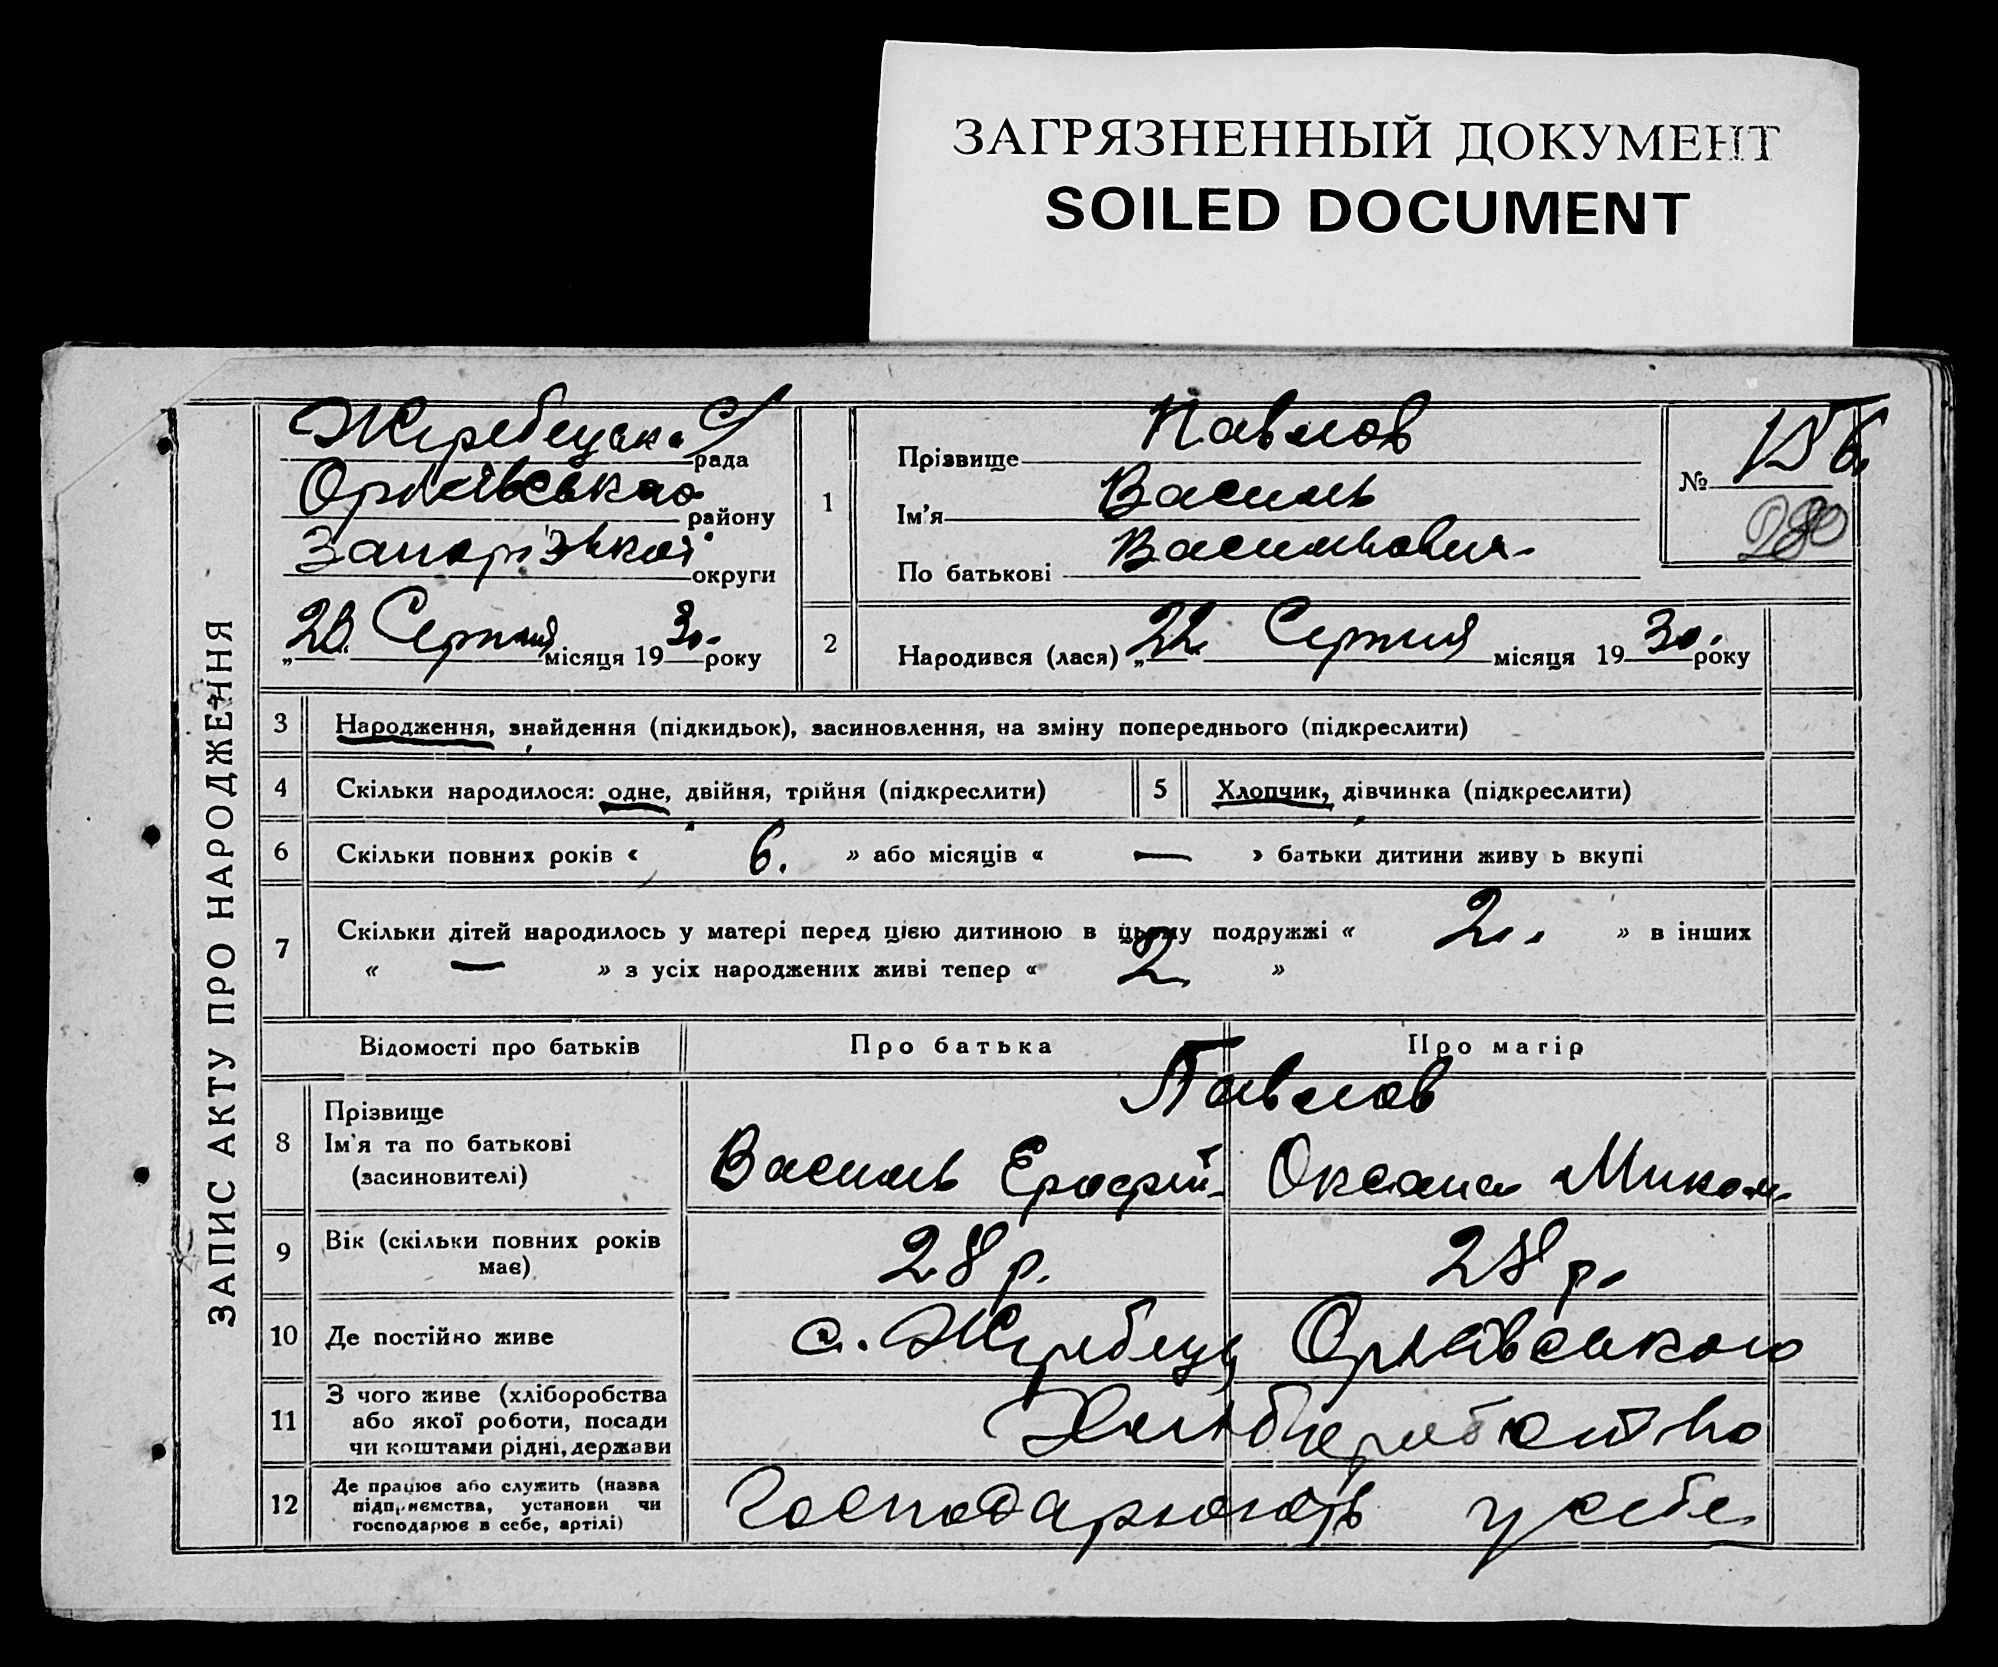 ЗАГРЯЗНЕННЫЙ ДОКУМЕНТ
SOILED DOCUMENT
ЗАПИС АКТУ ПРО НАРОДЖЕННЯ
Жеребецька с/рада
Оріхівського району
Запорізької округи
„ 28 " Серпня місяця 1930 року
1
Прізвище Павлов
Ім'я Василь
По батькові Васильович
№ 156.
280
2
Народився (лася) „ 22 " Серпня місяця 1930. року
3 Народження, знайдення (підкидьок), засиновлення, на зміну попереднього (підкреслити)
4 Скільки народилося: одне, двійня, трійня (підкреслити) 5 Хлопчик, дівчинка (підкреслити)
6 Скільки повних років « 6. » або місяців « — » батьки дитини живу ь вкупі
7 Скільки дітей народилось у матері перед цією дитиною в цьому подружжі « 2. » в інших
« — » з усіх народжених живі тепер « 2 »
Відомості про батьків Про батька Про матір
8 Прізвище Павлов
Ім'я та по батькові
(засиновителі)
Василь Ерофій- Оксана Микол-
9 Вік (скільки повних років має) 28 р. 28 р.
10 Де постійно живе с. Жеребець Оріхівського
11 З чого живе (хліборобства
або якої роботи, посади
чи коштами рідні, держави
Хліборобство
12 Де працює або служить (назва
підприємства, установи чи
господарює в себе, артілі)
Господарюють у себе